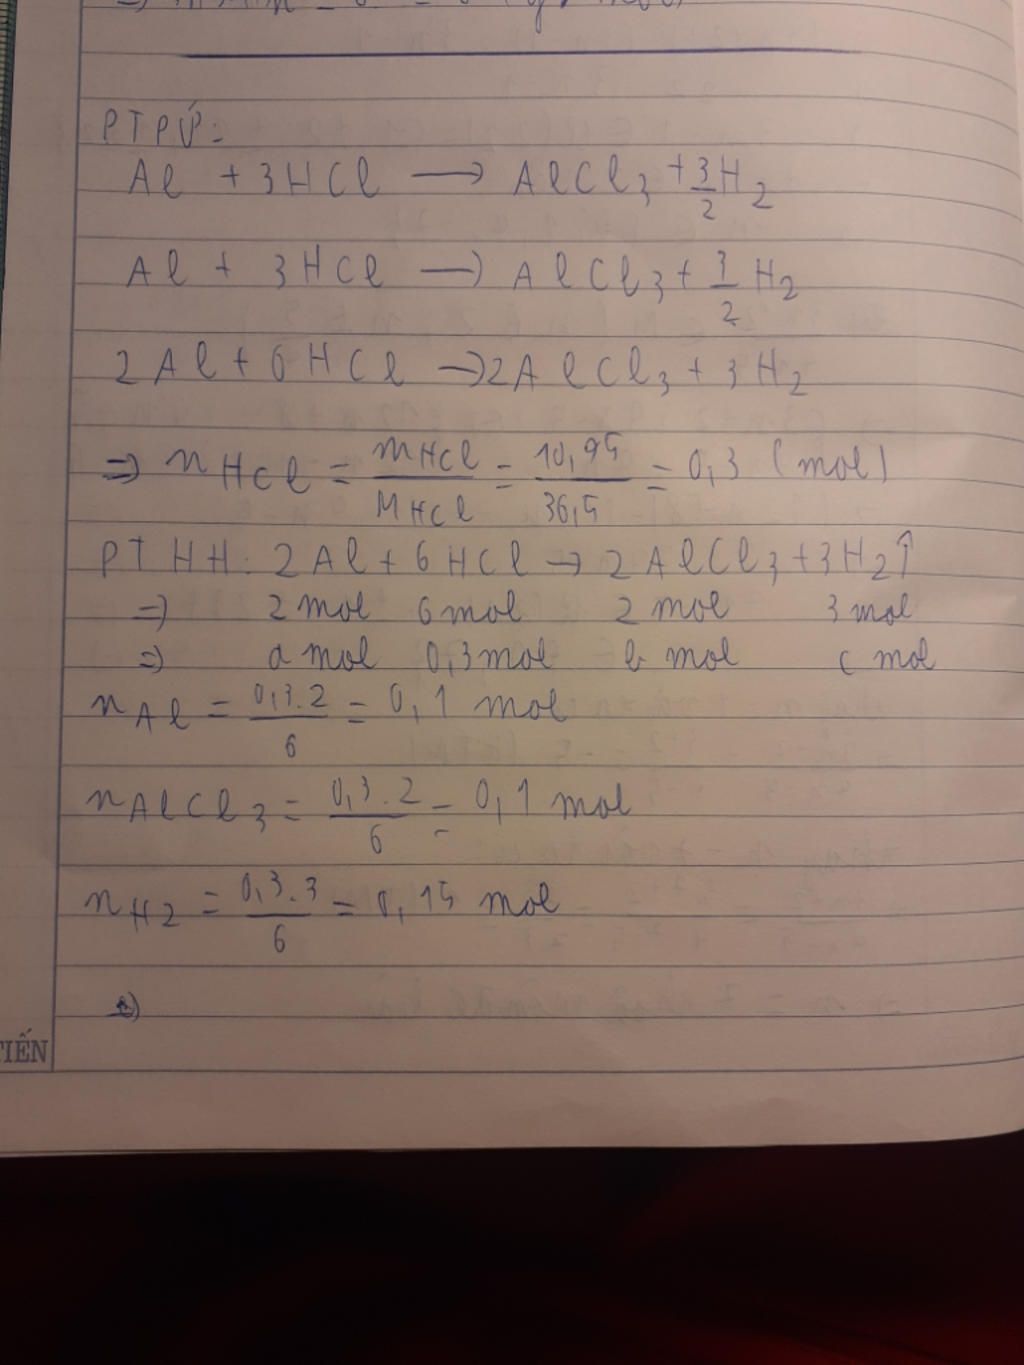 PTPỨ:
Al + 3HCl → AlCl3 + 3/2 H2
Al + 3HCl → AlCl3 + 3/2 H2
2Al + 6HCl → 2AlCl3 + 3H2
=> nHCl = mHCl/MHCl = 10,95/36,5 = 0,3 (mol)
PTHH: 2Al + 6HCl → 2AlCl3 + 3H2↑
=> 2 mol 6 mol 2 mol 3 mol
=> a mol 0,3 mol b mol c mol
nAl = 0,3.2/6 = 0,1 mol
nAlCl3 = 0,3.2/6 = 0,1 mol
nH2 = 0,3.3/6 = 0,15 mol
=>
TIẾN